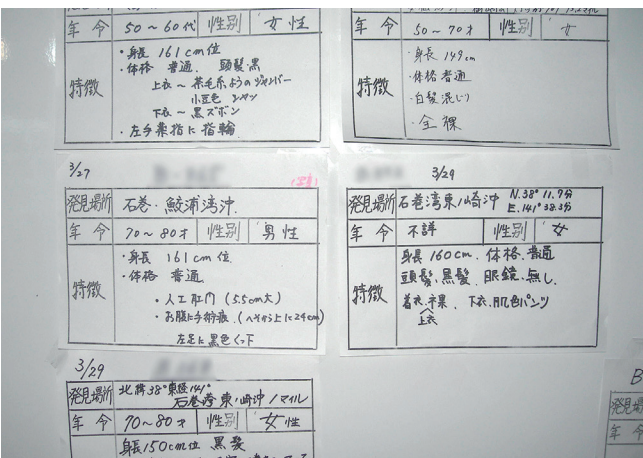 年令 50～60代 性別 女性
特徴
・身長 161cm位
・体格 普通. 頭髪・黒
上衣～茶毛糸ようのジャンパー
小豆色 シャツ
下衣～黒ズボン
・左手薬指に指輪
年令 50～70才 性別 女
特徴
・身長 149cm
・体格普通
・白髪混じり
・全裸
3/27
発見場所 石巻・鮫浦湾沖.
年令 70～80才 性別 男性
特徴
・身長 161cm位
・体格 普通.
・人工肛門 (5.5cm大)
・お腹に手術痕.(ヘソから上に24cm)
左足に黒色くつ下
3/29
発見場所 石巻湾東ノ崎沖 N.38°11.7分
E.141°38.3分
年令 不詳 性別 女
特徴
身長160cm. 体格.普通
頭髪.黒髪 眼鏡.無し.
着衣 上衣 下衣.肌色パンツ
3/29
発見場所 北緯38°東経141°
石巻湾東ノ崎沖1マイル
年令 70～80才 性別 女性
身長150cm位 黒髪
発見場
年令